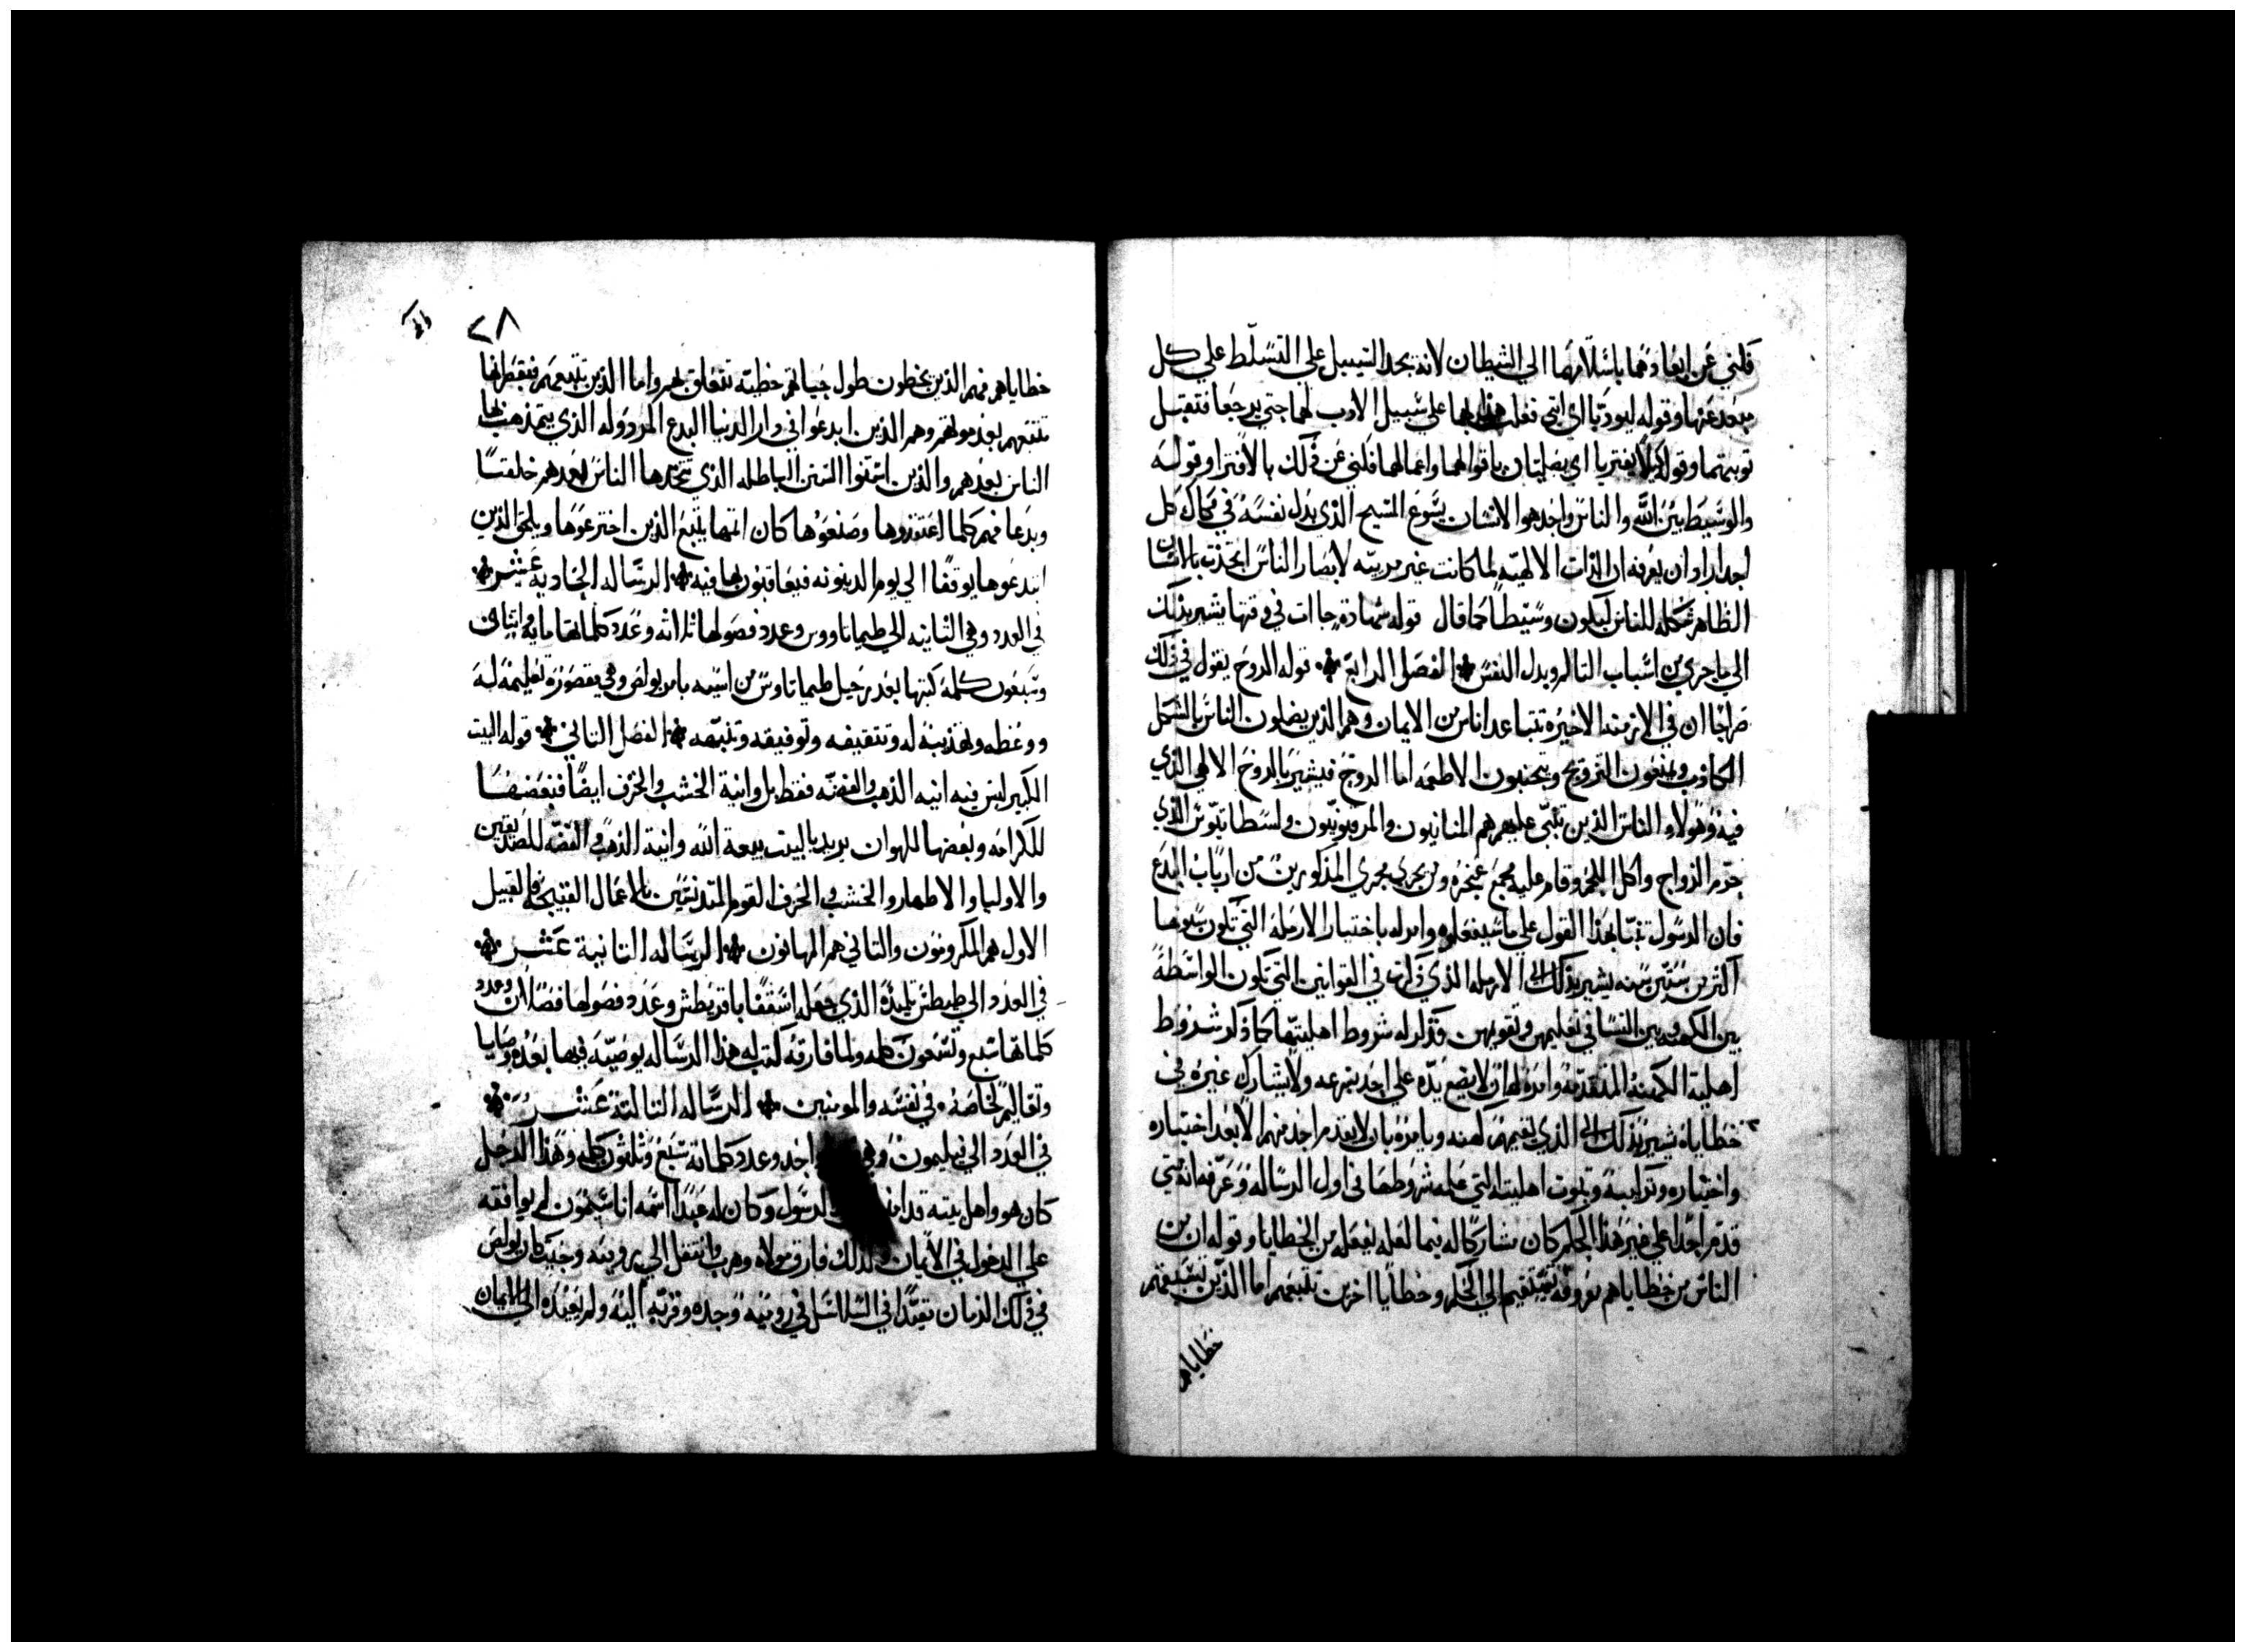 فكني عن ابعادهما باسلامهما الي الشيطان لانه يجد السبيل علي التسلط علي كل
من بعد عنها وقوله ليودبا اي انني فعلت هذا بهما علي سبيل الادب لهما حتي يرجعا فتقبل
توبتهما وقوله ليلا يفتريا اي يضلان باقوالهما واعمالهما فكني عن ذلك بالافترا وقوله
والوسيط بين الله والناس واحد هوا الانسان يسوع المسيح الذي بدل نفسه في فكاك كل
احد اراد ان يعرفه ان الذات الالهيه لما كانت غير مرييه لابصار الناس اتحدت بالانسان
الظاهر شكله للناس ليكون وسيطا كما قال قوله شهادة جاات في وقتها يشير بذلك
الي ما جري من اسباب التالم وبدل النفس الفصل الرابع قوله الروح يقول في ذلك
صراحا ان في الازمنه الاخيره تتباعد اناس من الايمان وهم الذين يضلون الناس بالشكل
الكاذب ويمنعون التزويج ويتجنبون الاطعمه اما الروح فيشير به الروح الالهي الذي
فيه وهولاء الناس الذين تنبي عليهم هم المنانيون والمرقيونيون واسطاتيوس الذي
حرم الزواج واكل اللحم وقام عليه مجمع غنجره ومن يجري مجري المذكورين من ارباب البدع
فان الرسول تنبا بهذا القول علي ما سيفعلوه وامر له باختيار الارمله التي تكون سنوها
اكثر من ستين سنه يشير بذلك الي الارمله الذي ذكرت في القوانين التي تكون الواسطة
بين الكهنه وبين النسا في تعليمهن وتقويمهن فذكر له شروط اهليتها كما ذكر شروط
اهلية الكهنة المتقدمه وامره له ان لا يضع يده علي احد بسرعه ولا يشارك غيره في
خطاياه يشير بذلك الي الذي يقيمهم كهنه ويامره بان لا يقدم احد منهم الا بعد اختباره
واختياره وتراتيبه وثبوت اهليته التي علمه شروطها في اول الرساله وعرفه انه متي
قدم احدا علي غير هذا الحكم كان مشاركا له فيما لعله يفعله من الخطايا وقوله ان من
الناس من خطاياهم معروفه تتقدمهم الي الحكم وخطايا اخرين تتبعهم اما الذين تسبقهم
خطاياهم
٢٨
خطاياهم فهم الذين يخطون طول حياتهم خطيه تتعلق بهم واما الذين تتبعهم فبقطراتها
تتبعهم بعد موتهم وهم الذين ابدعوا في دار الدنيا البدع المردوله الذي يتمذهب بها
الناس بعدهم والذين استنوا السنن الباطله الذي تتخدها الناس بعدهم خلفتا
وبدعا فهم كلما اعتقدوها وصنعوها كان اتمها يتبع الذين اخترعوها ويلحق الذين
ابتدعوها يوقفا الي يوم الدينونه فيعاقبون بها فيه الرساله الحاديه عشر
في العدد وهي الثانيه الي طيماتاووس وعدد فصولها ثلاثه وعدد كلماتها مايه واثنان
وسبعون كلمه كتبها بعد رحيل طيماتاوس من اسيه بامر بولص وهي مقصوره تعليمه له
ووعظه وتهذيبه له وتثقيفه وتوفيقه وتنبيهه الفصل الثاني قوله البيت
الكبير ليس فيه انيه الذهب والفضه فقط بل وانية الخشب والخزف ايضا فبعضها
للكرامه وبعضها للهوان يريد بالبيت بيعة الله وانية الذهب والفضه للصديقين
والاوليا والاطهار والخشب والخزف القوم المتدنسين بالاعمال القبيحه فالقبيل
الاول هم المكرومون والثاني هم المهانون الرساله الثانية عشر
في العدد الي طيطس تلميذه الذي جعله اسقفا باقريطش وعدد فصولها فصلان وعدد
كلماتها سبع وتسعون كلمه ولما فارقه كتب له هذا الرساله يوصيه فيها بعده وصايا
وتعاليم خاصه في نفسه والمومنين الرساله الثالثة عشر
في العدد الي فيليمون وهي احد وعدد كلماته سبع وثلثون كلمه وهذا الرجل
كان هو واهل بيته قد امن الرسول وكان له عبدا اسمه اناسيمون لم يوافقه
علي الدخول في الايمان ولذلك فارق مولاه وهرب وانتقل الي روميه وحيث كان بولص
في ذلك الزمان مقيدا في السلاسل في روميه وجده وقربه اليه ولم يعيده الي الايمان